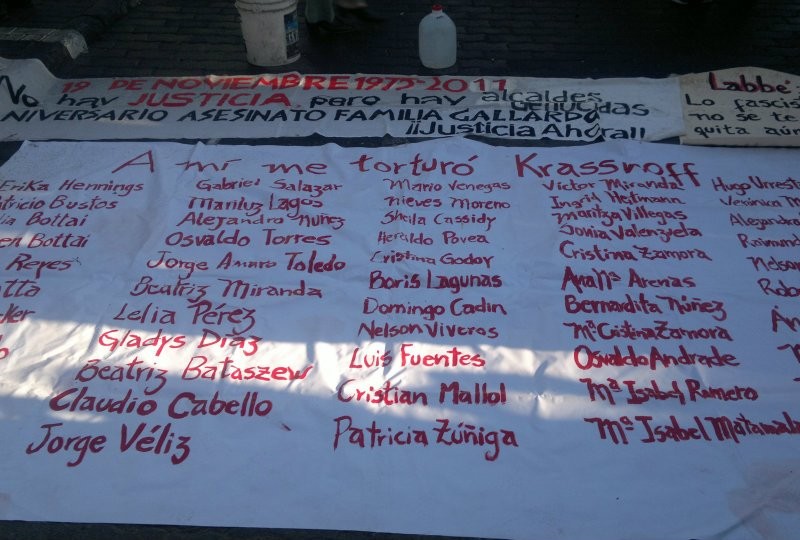 19 DE NOVIEMBRE 1975-2011
No hay JUSTICIA pero hay alcaldes genocidas
ANIVERSARIO ASESINATO FAMILIA GALLARDO
¡¡Justicia Ahora!!
Labbé
Lo fascis
no se te
quita aún
A mí me torturó Krassnoff
Erika Hennings
tricio Bustos
ia Bottai
en Bottai
Reyes
atta
Gabriel Salazar
Mariluz Lagos
Alejandro Nuñez
Osvaldo Torres
Jorge Amaro Toledo
Beatriz Miranda
Lelia Pérez
Gladys Díaz
Beatriz Bataszew
Claudio Cabello
Jorge Véliz
Mario Venegas
Nieves Moreno
Sheila Cassidy
Heraldo Povea
Cristina Godoy
Boris Lagunas
Domingo Cadin
Nelson Viveros
Luis Fuentes
Cristian Mallol
Patricia Zúñiga
Victor Miranda
Ingrid Heitmann
Maritza Villegas
Sonia Valenzuela
Cristina Zamora
Ana Mª Arenas
Bernardita Núñez
Mª Cristina Zamora
Osvaldo Andrade
Mª Isabel Romero
Mª Isabel Matamala
Hugo Urrest
Verónica M
Alejandra
Raimund
Nelson
Robe